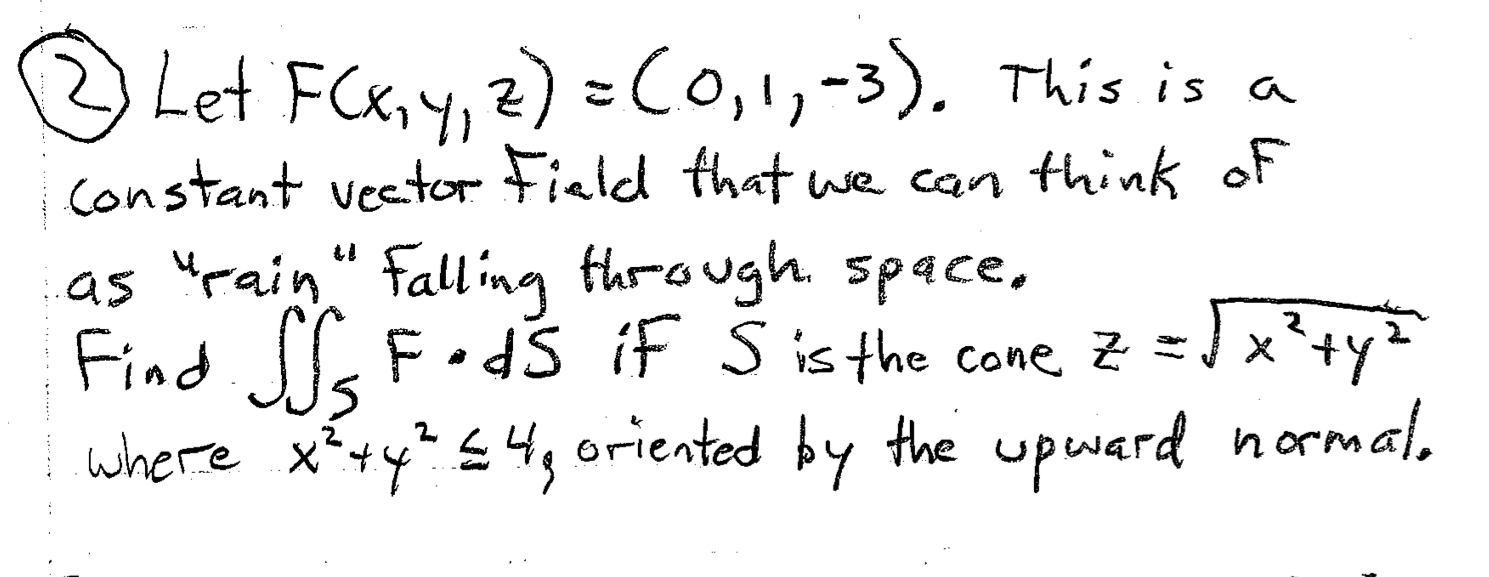 ② Let F(x,y,z) = (0,1,-3). This is a
constant vector field that we can think of
as "rain" falling through space.
Find ∬_S F • dS if S is the cone z = √(x²+y²)
where x²+y² ≤ 4, oriented by the upward normal.